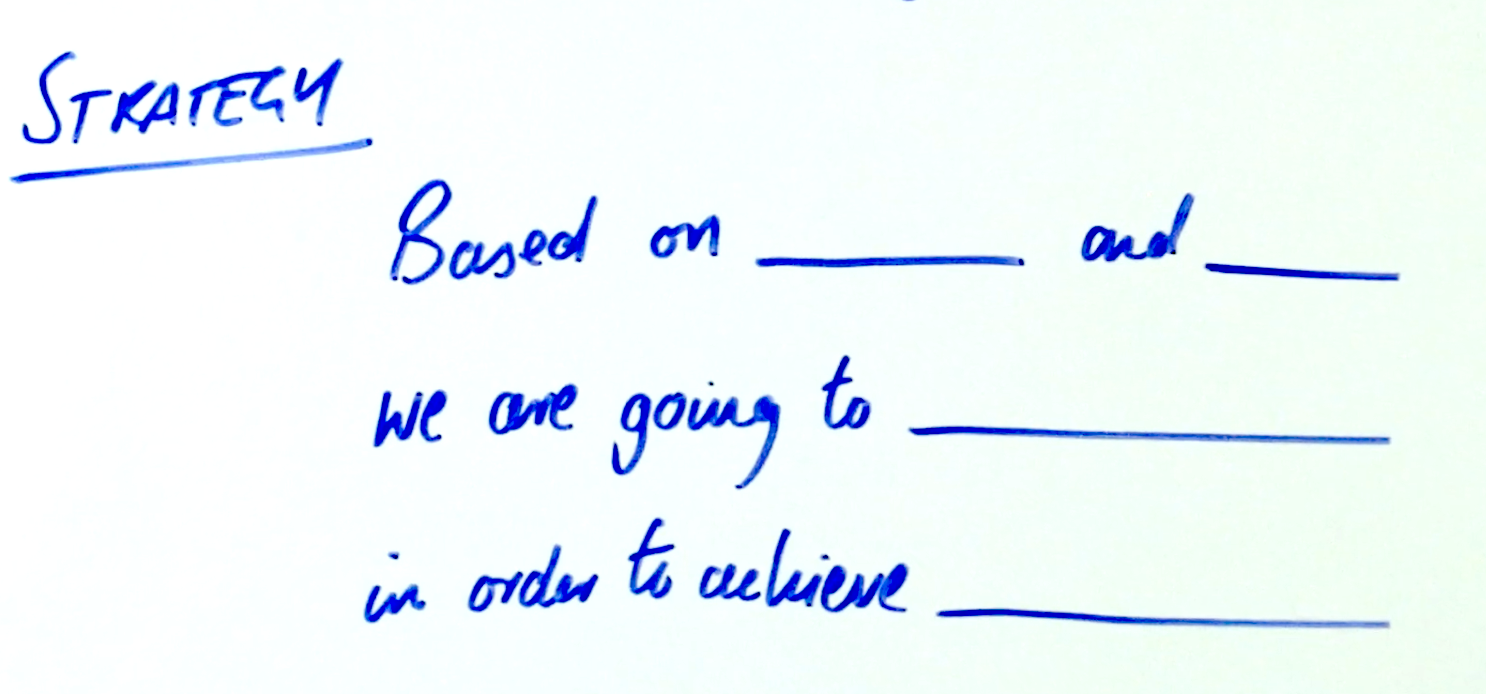 STRATEGY
Based on ______ and ______
we are going to ______
in order to achieve ______